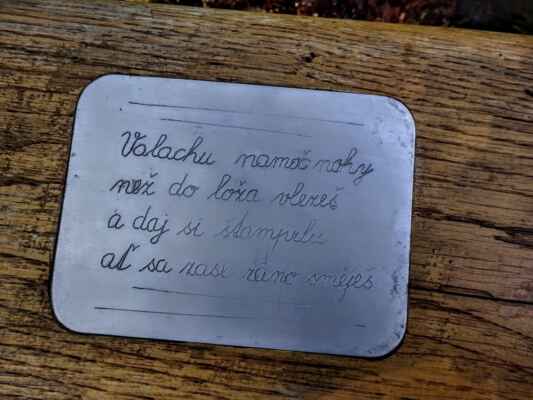 Valachu namoč nohy
než do loža vlezeš
a daj si štamprlu
ať sa zase ráno směješ